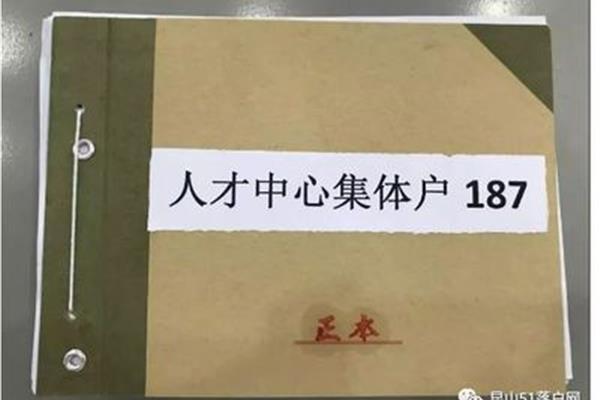 人才中心集体户 187
正本
昆山51落户网